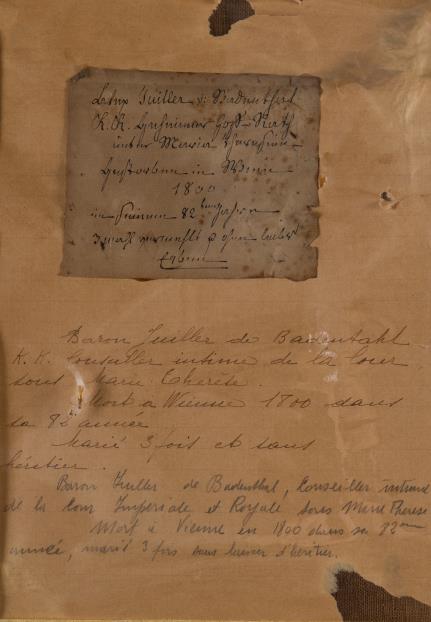 K. K. Geheimer Hof-Rath
unter Maria Theresia
Gestorben in Wien
1800
in seinem 82 Jahre
3 mahl vermehlt ohne leibes
Erben
Baron Juiller de Badentahl
K. K. Conseiller intime de la Cour
sous Marie Therèse.
Mort à Vienne 1800 dans
sa 82 année
Marié 3 fois et sans
héritier.
Baron de Badenthal, Conseiller intime
de la Cour Impériale et Royale sous Marie Therese
Mort à Vienne en 1800 dans sa 82ème
année, marié 3 fois sans laisser d'héritier.